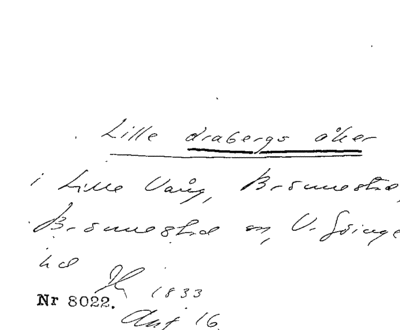 Lille drabergs åker
i Lille Vång, Brönnestad,
Brönnestad sn, V. Göinge
hd
1833
Nr 8022.
Akt 16